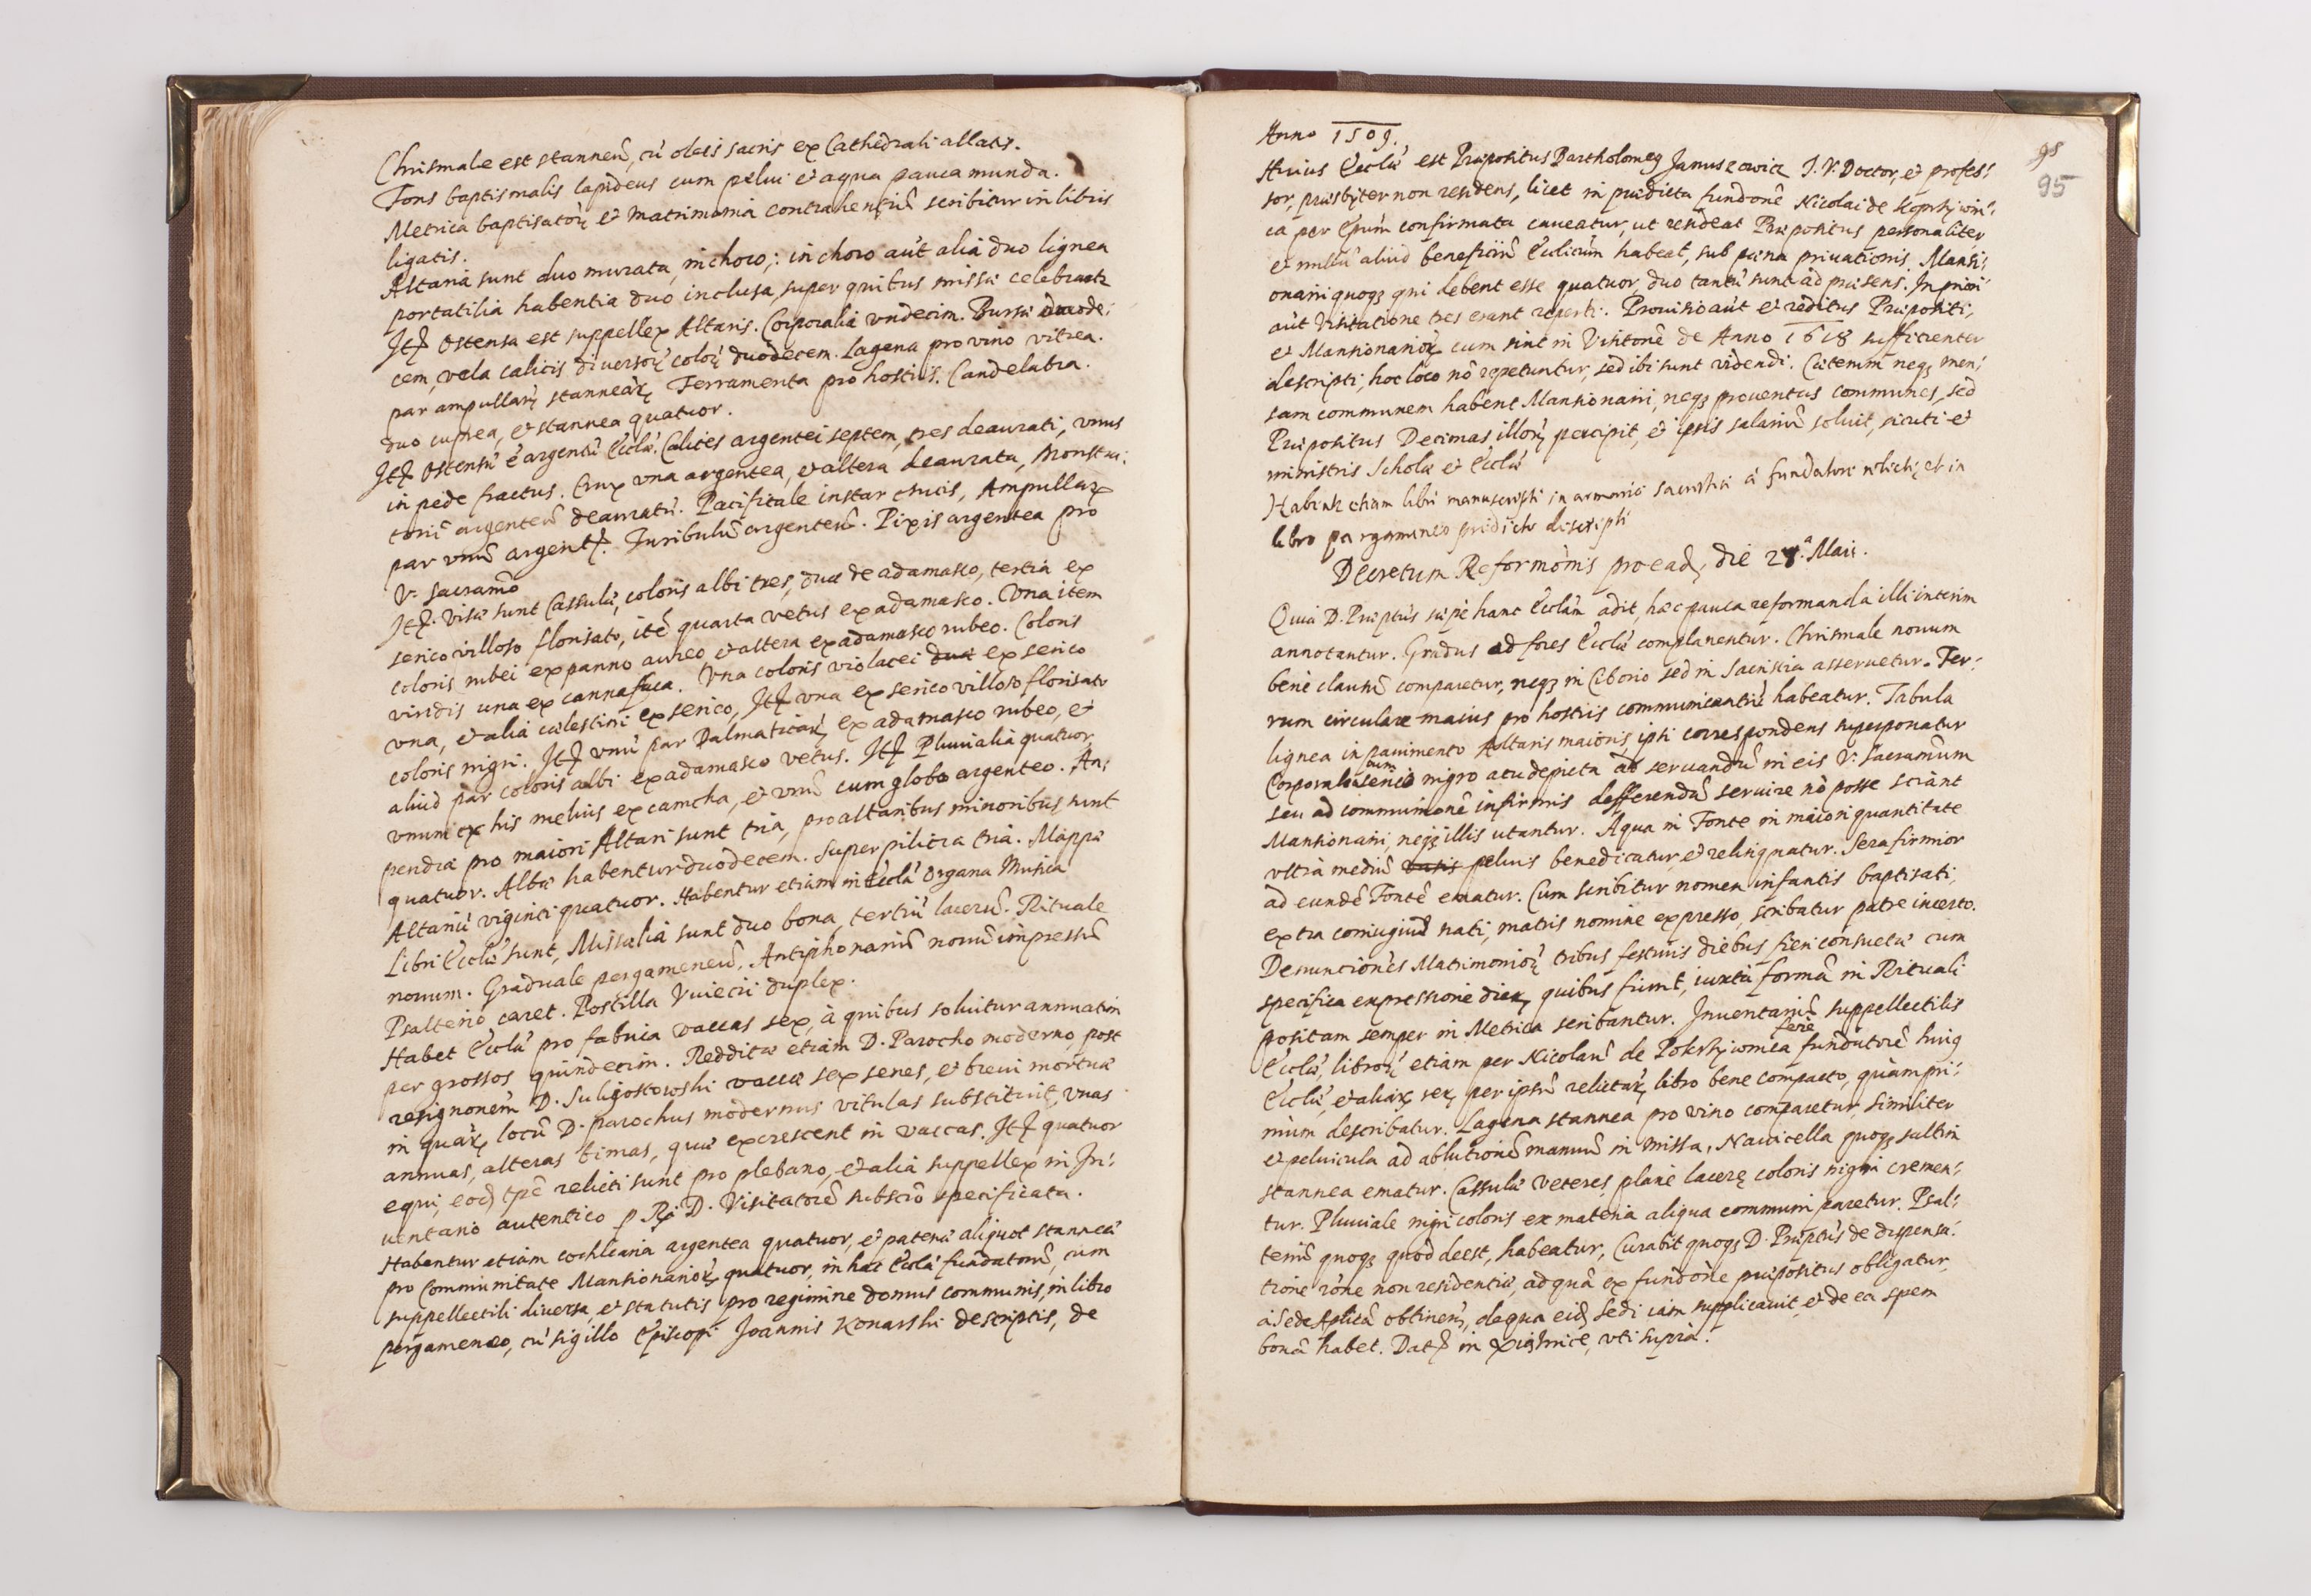 Chrismale est stanneũ, cũ oleis sacris ex Cathedrali allatis.
Fons baptismalis lapideus cum pelui et aqua pauca munda.
Metrica baptisatorũ et matrimonia contrahentiũ scribitur in libris
ligatis.
Altaria sunt duo murata, in choro,: in choro aũt alia duo lignea
portatilia habentia duo inclusa, super quibus missæ celebrantr
Itẽ ostensa est suppellex Altaris. Corporalia vndecim. Bursæ duode:
cem, vela calicis diversorũ colorũ duodecem. Lagena pro vino vitrea.
par ampullarũ stannearũ, Ferramenta pro hostiis. Candelabra
duo cuprea, et stannea quatuor.
Itẽ ostensũ ẽ argentũ Ecclæ. Calices argentei septem, tres deaurati, vnus
in pede fractus. Crux vna argentea, et altera deaurata, Monstra:
toriũ argenteũ deauratũ. Pacificale instar crucis, Ampullarũ
par vnũ argentẽ. Turibulũ argenteũ. Pixis argentea pro
V: Sacramõ
Itẽ. visæ sunt Cassulæ, coloris albi tres, duæ de adamasco, tertia ex
serico villoso florisato, itẽ quarta vetus ex adamasco. Vna item
coloris rubei ex panno aureo et altera ex adamasco rubeo. Coloris
viridis una ex canna fusca. Vna coloris violacei duæ ex serico
vna, et alia cælestini ex serico, Itẽ vna ex serico villoso florisato
coloris nigri. Itẽ vnũ par Dalmaticarũ, ex adamasco rubeo, et
aliud par coloris albi ex adamasco vetus. Itẽ Pluuialia quatuor
vnum ex his melius ex camcha, et vnũ cum globo argenteo. An:
pendia pro maiori Altari sunt tria, pro altaribus minoribus sunt
quatuor. Albæ habentur duodecem. Superpilicia tria. Mappæ
Altariũ viginti quatuor. Habentur etiam in Eccla Organa Musica
Libri Ecclæ sunt, Missalia sunt duo bona, tertiũ lacerũ. Rituale
nouum. Graduale pergameneũ. Antiphonariũ nouũ impressũ
Psalterio caret. Postilla Vuiecii duplex.
Habet Eccla pro fabrica vaccas sex, à quibus soluitur annuatim
per grossos quindecim. Redditæ etiam D. Parocho moderno, post
resignonem D. Suligostowski vaccæ sex senes, et breui mortuæ
in quarũ locũ D. parochus modernus vitulas substituit, vnas
annuas, alteras bimas, quæ excrescent in vaccas. Itẽ quatuor
equi, eod tpe relicti sunt pro plebano, et alia suppellex in In:
uentario autentico p R. D. Visitatorẽ subscrõ specificata.
Habentur etiam cochlearia argentea quatuor, et patenæ aliquot stanneæ
pro Communitate Mansionariorũ quatuor, in hac Eccla fundatorũ, cum
suppellectili diuersa, et statutis pro regimine domus communis, in libro
pergameneo, cũ sigillo Episcopi Joannis Konarski descriptis, de
Anno 1509.
98
95
Huius Ecclæ est Præpositus Bartholomeg Januszowicz J. V. Doctor, et profes:
sor, præsbyter non residens, licet in prædicta fundone Nicolai de Koprzywni:
ca per Epum confirmata caueatur, ut resideat Præpositus personaliter
et nullũ aliud beneficiũ Ecclicum habeat, sub pœna priuationis. Mansi:
onarii quoq; qui debent esse quatuor, duo tantũ sunt ad præsens. In priori
aũt Visitatione tres erant reperti. Prouisio aũt et reditus Præpositi,
et Mansionariorũ, cum sint in Visitone de Anno 1618 sufficienter
descripti, hoc loco nõ repetuntur, sed ibi sunt videndi. Cæterum neq; men:
sam communem habent Mansionarii, neq; prouentus communes, sed
Præpositus Decimas illorũ percipit, et ipsis salariũ soluit, sicuti et
ministris Scholæ et Ecclæ
Habentr etiam libri manuscripti in armario sacristiæ à fundatore relicti, et in
libro pargameneo prædicto descripti
Decretum Reformõnis pro ead, die 28.ª Maii.
Quia D. Præptus sæpe hanc Ecclam adit, hæc pauca reformanda illi interim
annotantur. Gradus ad fores Ecclæ complanentur. Chrismale nouum
bene clausũ comparetur, neq; in Ciborio sed in Sacristia asseruetur. Fer:
rum circulare maius pro hostiis communicantiũ habeatur. Tabula
lignea in pauimento Altaris maioris, ipsi correspondens superponatur
Corporalia cum serico nigro acu depicta ad seruandũ in eis V: Sacramũm
seu ad communionẽ infirmis defferendũ seruire nõ posse sciant
Mansionarii, neq; illis utantur. Aqua in Fonte in maiori quantitate
vltra mediũ vasis peluis benedicatur, et relinquatur. Sera firmior
ad eundẽ Fontẽ ematur. Cum scribitur nomen infantis baptisati,
extra coniugiũ nati, matris nomine expresso, scribatur patre incerto.
Denunciones Matrimoniorũ tribus festiuis diebus fieri consuetæ cum
specifica expressione dierũ, quibus fiunt, iuxta formã in Rituali
positam semper in Metrica scribantur. Inuentariũ suppellectilis
Ecclæ, librorũ etiam per Nicolaũ de Pokrzywnica fere fundatorẽ huig
Ecclæ, et aliarũ rerũ, per ipsũ relictarũ, libro bene compacto, quampri:
mum describatur. Lagena stannea pro vino comparetur, similiter
et peluicula ad ablutionẽ manuũ in missa, Nauicella quoq; saltim
stannea ematur. Cassulæ veteres, plane laceræ coloris nigri cremen:
tur. Pluuiale nigri coloris ex materia aliqua communi paretur. Psal:
teriũ quoq; quod deest, habeatur, Curabit quoq; D. Præptus de dispensa:
tione rone non residentiæ, ad quã ex fundone præpositus obligatur,
à Sede Aplica obtinenda, de qua eid Sedi iam supplicauit, et de ea spem
bonã habet. Datẽ in Xiążnice, vti supra.